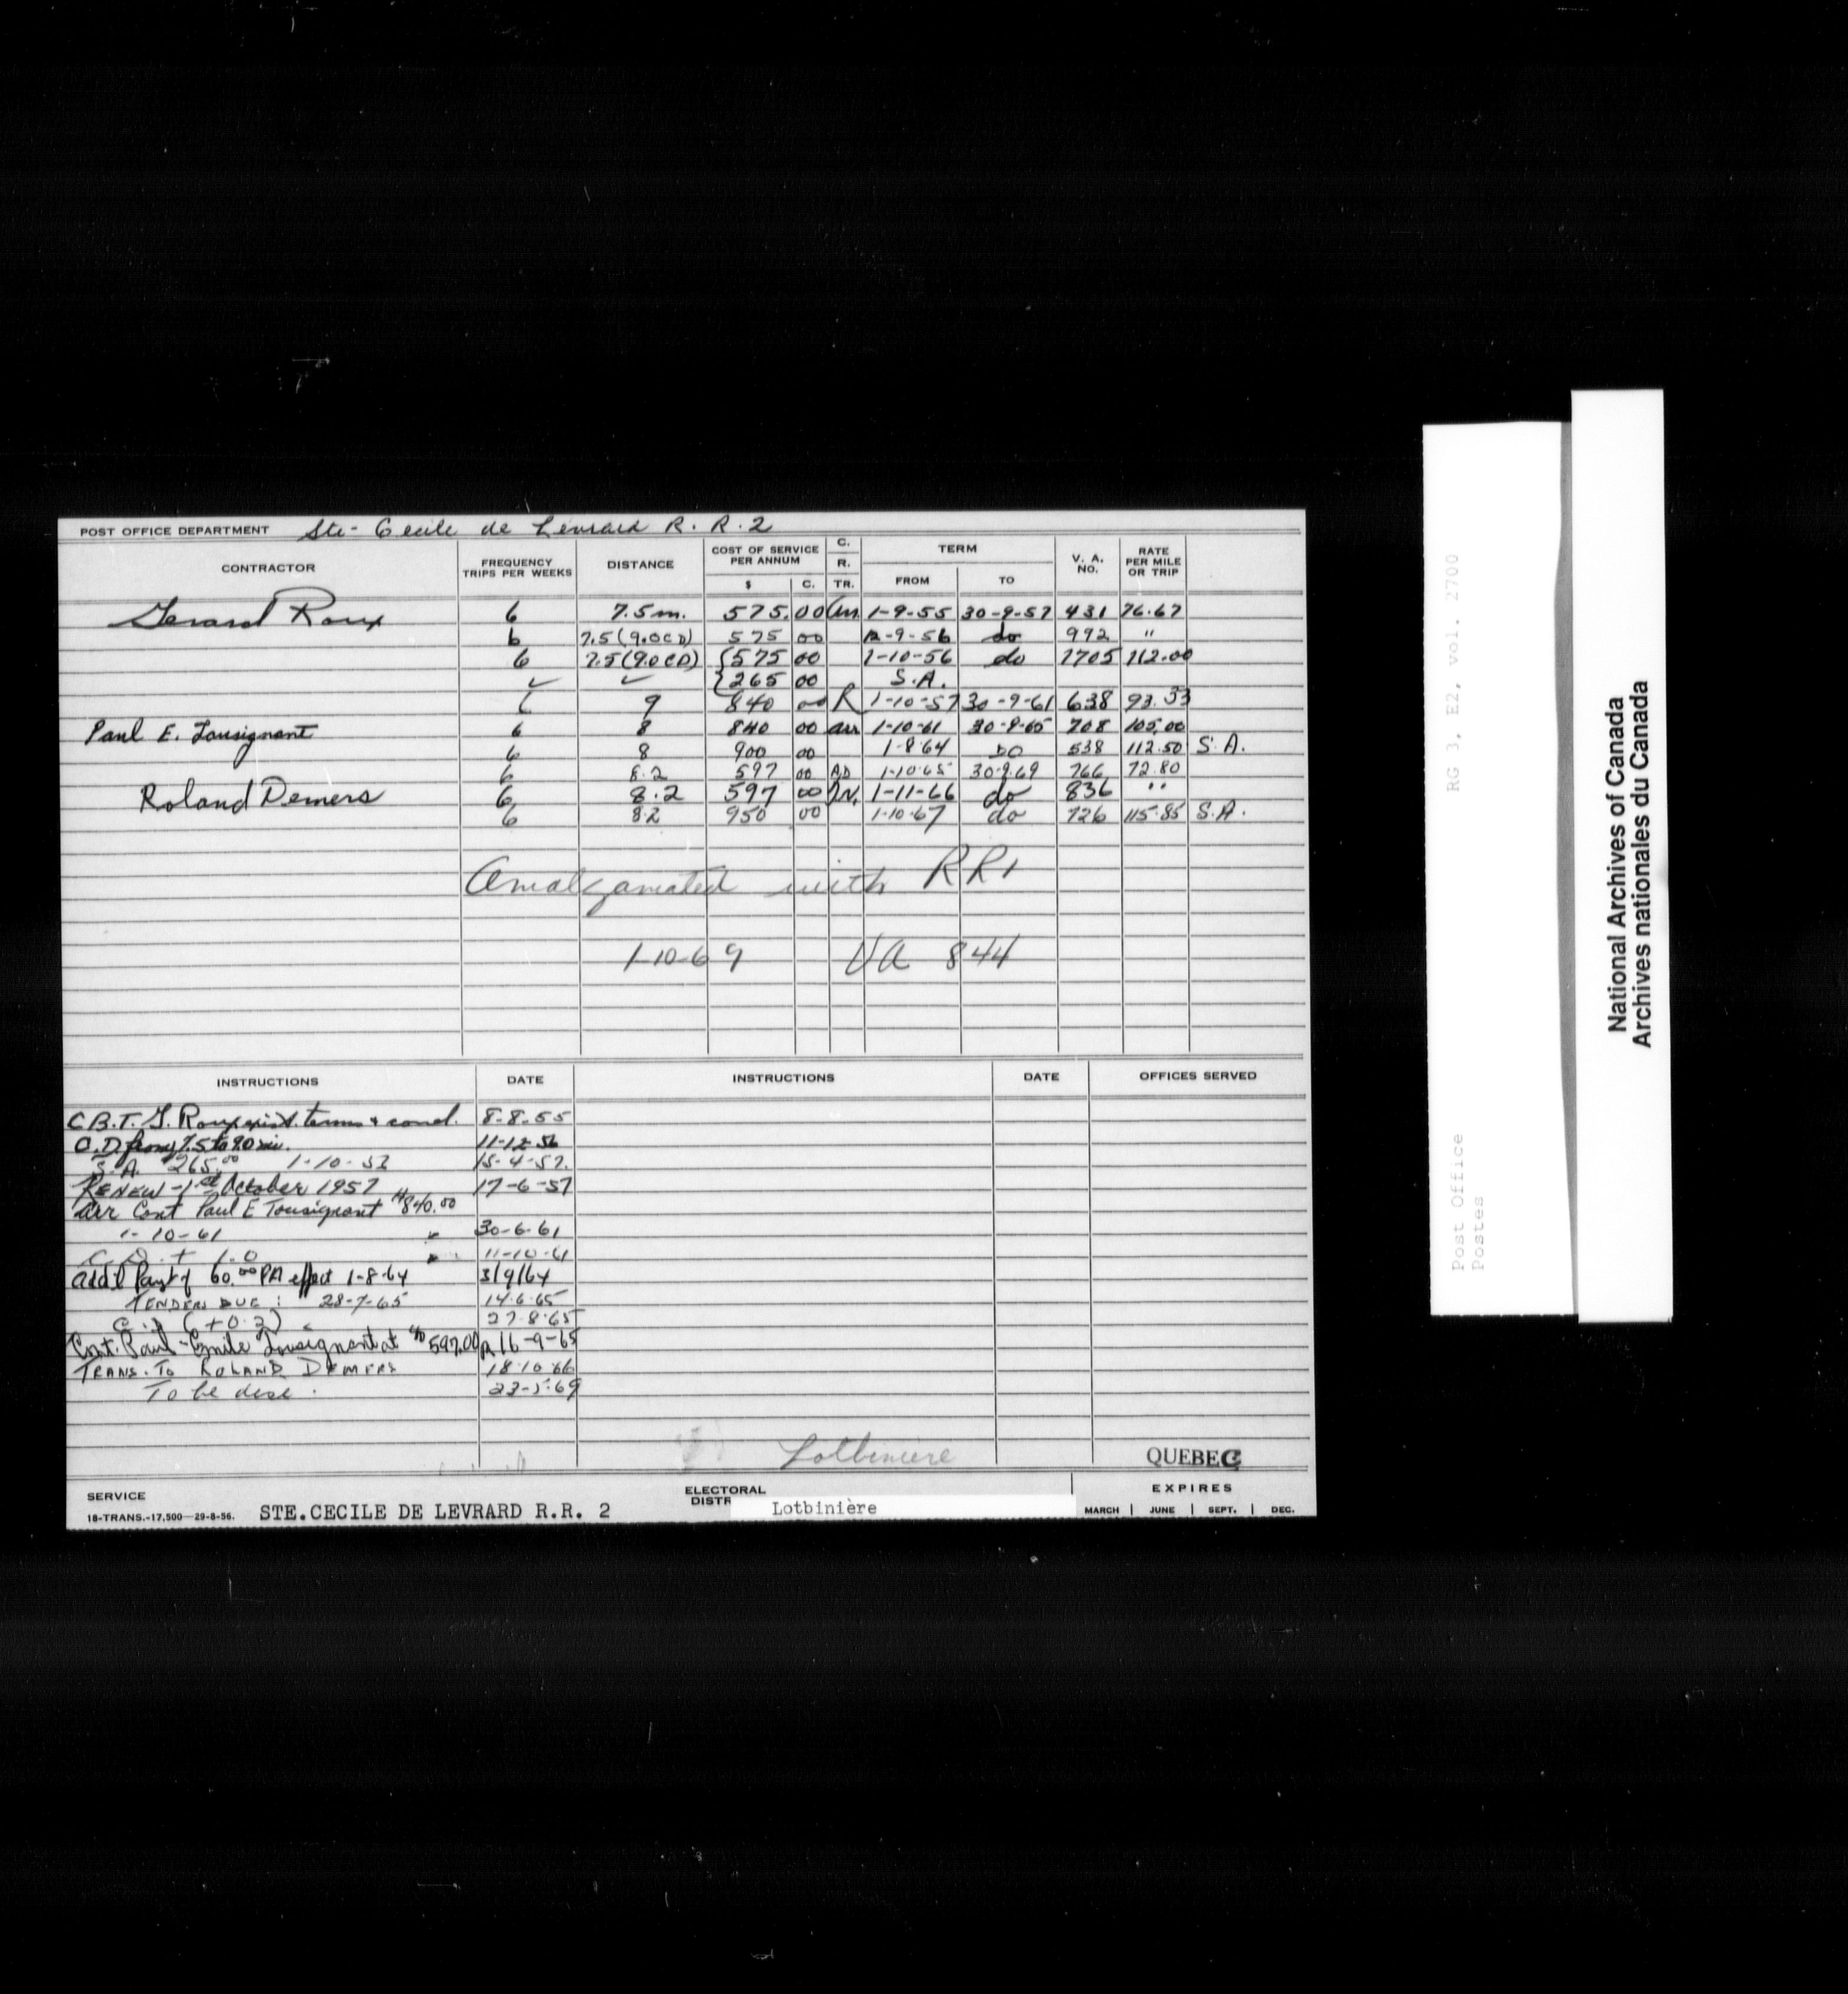 POST OFFICE DEPARTMENT Ste-Cecile de Levrard R. R. 2
CONTRACTOR FREQUENCY TRIPS PER WEEKS DISTANCE COST OF SERVICE PER ANNUM $ C. C. R. TR. TERM FROM TO V. A. NO. RATE PER MILE OR TRIP
Gerard Roux 6 7.5 m. 575.00 1-9-55 30-9-57 431 76.67
6 7.5 (9.0 CD) 575 00 12-9-56 do 992 "
6 7.5 (9.0 CD) {575 00 1-10-56 do 1705 112.00
✓ ✓ {265 00 S.A.
6 9 840 00 R 1-10-57 30-9-61 638 93.33
Paul E. Tousignant 6 8 840 00 arr 1-10-61 30-9-65 708 105.00
6 8 900 00 1-8-64 DO 538 112.50 S.A.
6 8.2 597 00 AD 1-10-65 30-9-69 766 72.80
Roland Demers 6 8.2 597 00 1-11-66 do 836 "
6 8.2 950 00 1-10-67 do 726 115.85 S.A.
Amalgamated with RR1
1-10-69 VA 844
INSTRUCTIONS DATE INSTRUCTIONS DATE OFFICES SERVED
C.B.T. G. Roux exist. terms & cond. 8-8-55
C.D. from 7.5 to 9.0 mi. 11-12-56
S.A. 265.00 1-10-57 15-4-57.
RENEW - 1st October 1957 17-6-57
arr Cont Paul E Tousignant $840.00
1-10-61 " 30-6-61
C.D. + 1.0 " 11-10-61
add'l Payt of 60.00 PA effect 1-8-64 3/9/64
TENDERS DUE : 28-7-65 14-6-65
C.D (+0.2) 27-8-65
Cont. Paul-Emile Tousignant at $597.00 16-9-65
TRANS. TO ROLAND DEMERS 18-10-66
To be disc. 23-5-69
Lotbinière QUEBEC
SERVICE STE.CECILE DE LEVRARD R.R. 2 ELECTORAL DISTR Lotbinière EXPIRES
18-TRANS.-17,500—29-8-56. MARCH | JUNE | SEPT. | DEC.
RG 3, E2, vol. 2700
Post Office
Postes
National Archives of Canada
Archives nationales du Canada